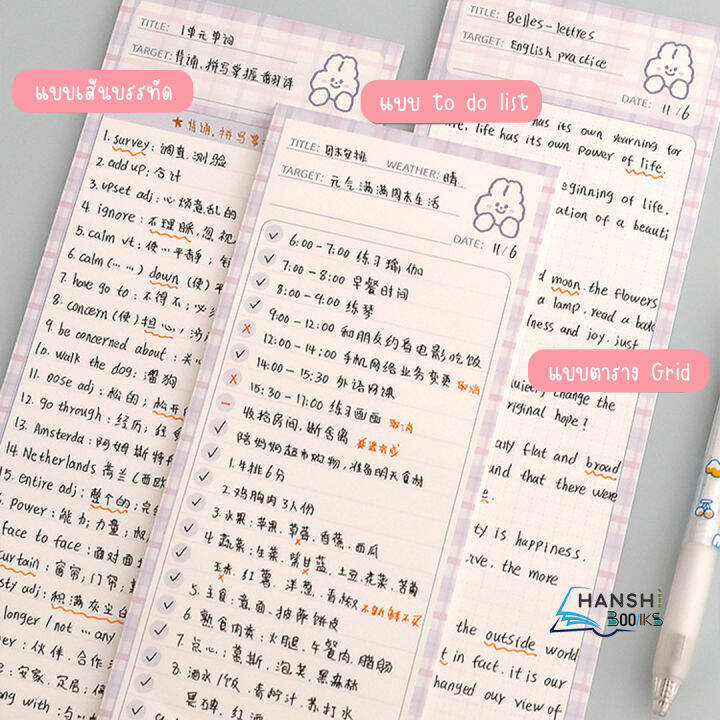 TITLE: 1单元单词
TARGET: 背诵、拼写掌握翻译
แบบเส้นบรรทัด
★背诵、拼写
1. survey: 调查. 测验
2. add up: 合计
3. upset adj: 心烦意乱的
4. ignore: 不理睬. 忽视
5. calm vt: 使…平静;
6. calm (... ...) down (使)平
7. have go to: 不得不;
8. concern (使)担心;
9. be concerned about: 关心
10. walk the dog: 溜狗
11. oose adj: 松的; 松开
12. go through: 经历; 经
13. Amsterda: 阿姆斯特丹
14. Netherlands 荷兰 (西欧
15. entire adj; 整个的; 完
Power: 能力; 力量;
face to face: 面对面
urtain: 窗帘, 门帘;
sty adj; 积满灰尘
longer / not ... any
er: 伙伴. 合作
: 安家. 定居;
ng with: 与
แบบ to do list
TITLE: 周末安排 WEATHER: 晴
TARGET: 元气满满周末生活
DATE: 11/6
✓ 6:00-7:00 练习瑜伽
✓ 7:00-8:00 早餐时间
✓ 8:00-9:00 练琴
✓ 9:00-12:00 和朋友约看电影吃饭
x 12:00-14:00 手机网络业务变更 取消
✓ 14:00-15:30 外语网课
x 15:30-17:00 练习画画 取消
— 收拾房间, 断舍离 延迟完成
✓ 陪妈妈超市购物, 准备明天食材
✓ 1. 牛排6分
✓ 2. 鸡胸肉3人份
✓ 3. 水果: 苹果. 草莓. 香蕉. 西瓜
✓ 4. 蔬菜: 生菜. 紫甘蓝. 土豆. 花菜. 苦菊
玉米. 红薯. 洋葱. 青椒 不新鲜不买
✓ 5. 主食: 意面. 披萨饼皮
✓ 6. 熟食肉类: 火腿. 午餐肉. 腊肠
✓ 7. 点心; 慕斯. 泡芙. 黑森林
✓ 8. 酒水/饮. 青柠汁. 苏打水
黑啤. 红酒
TITLE: Belles-lettres
TARGET: English practice
DATE: 11/6
has its own yearning for
life. life has its own power of life.
eginning of life.
ation of a beauti
d moon. the flowers
a lamp. read a book
lness and joy. just
แบบตาราง Grid
change the
riginal hope?
ally flat and broad
und that there were
e.
ty is happiness.
rve. the more
the outside world
t in fact. it is our
hanged our view of
HANSHI
BOOIKS